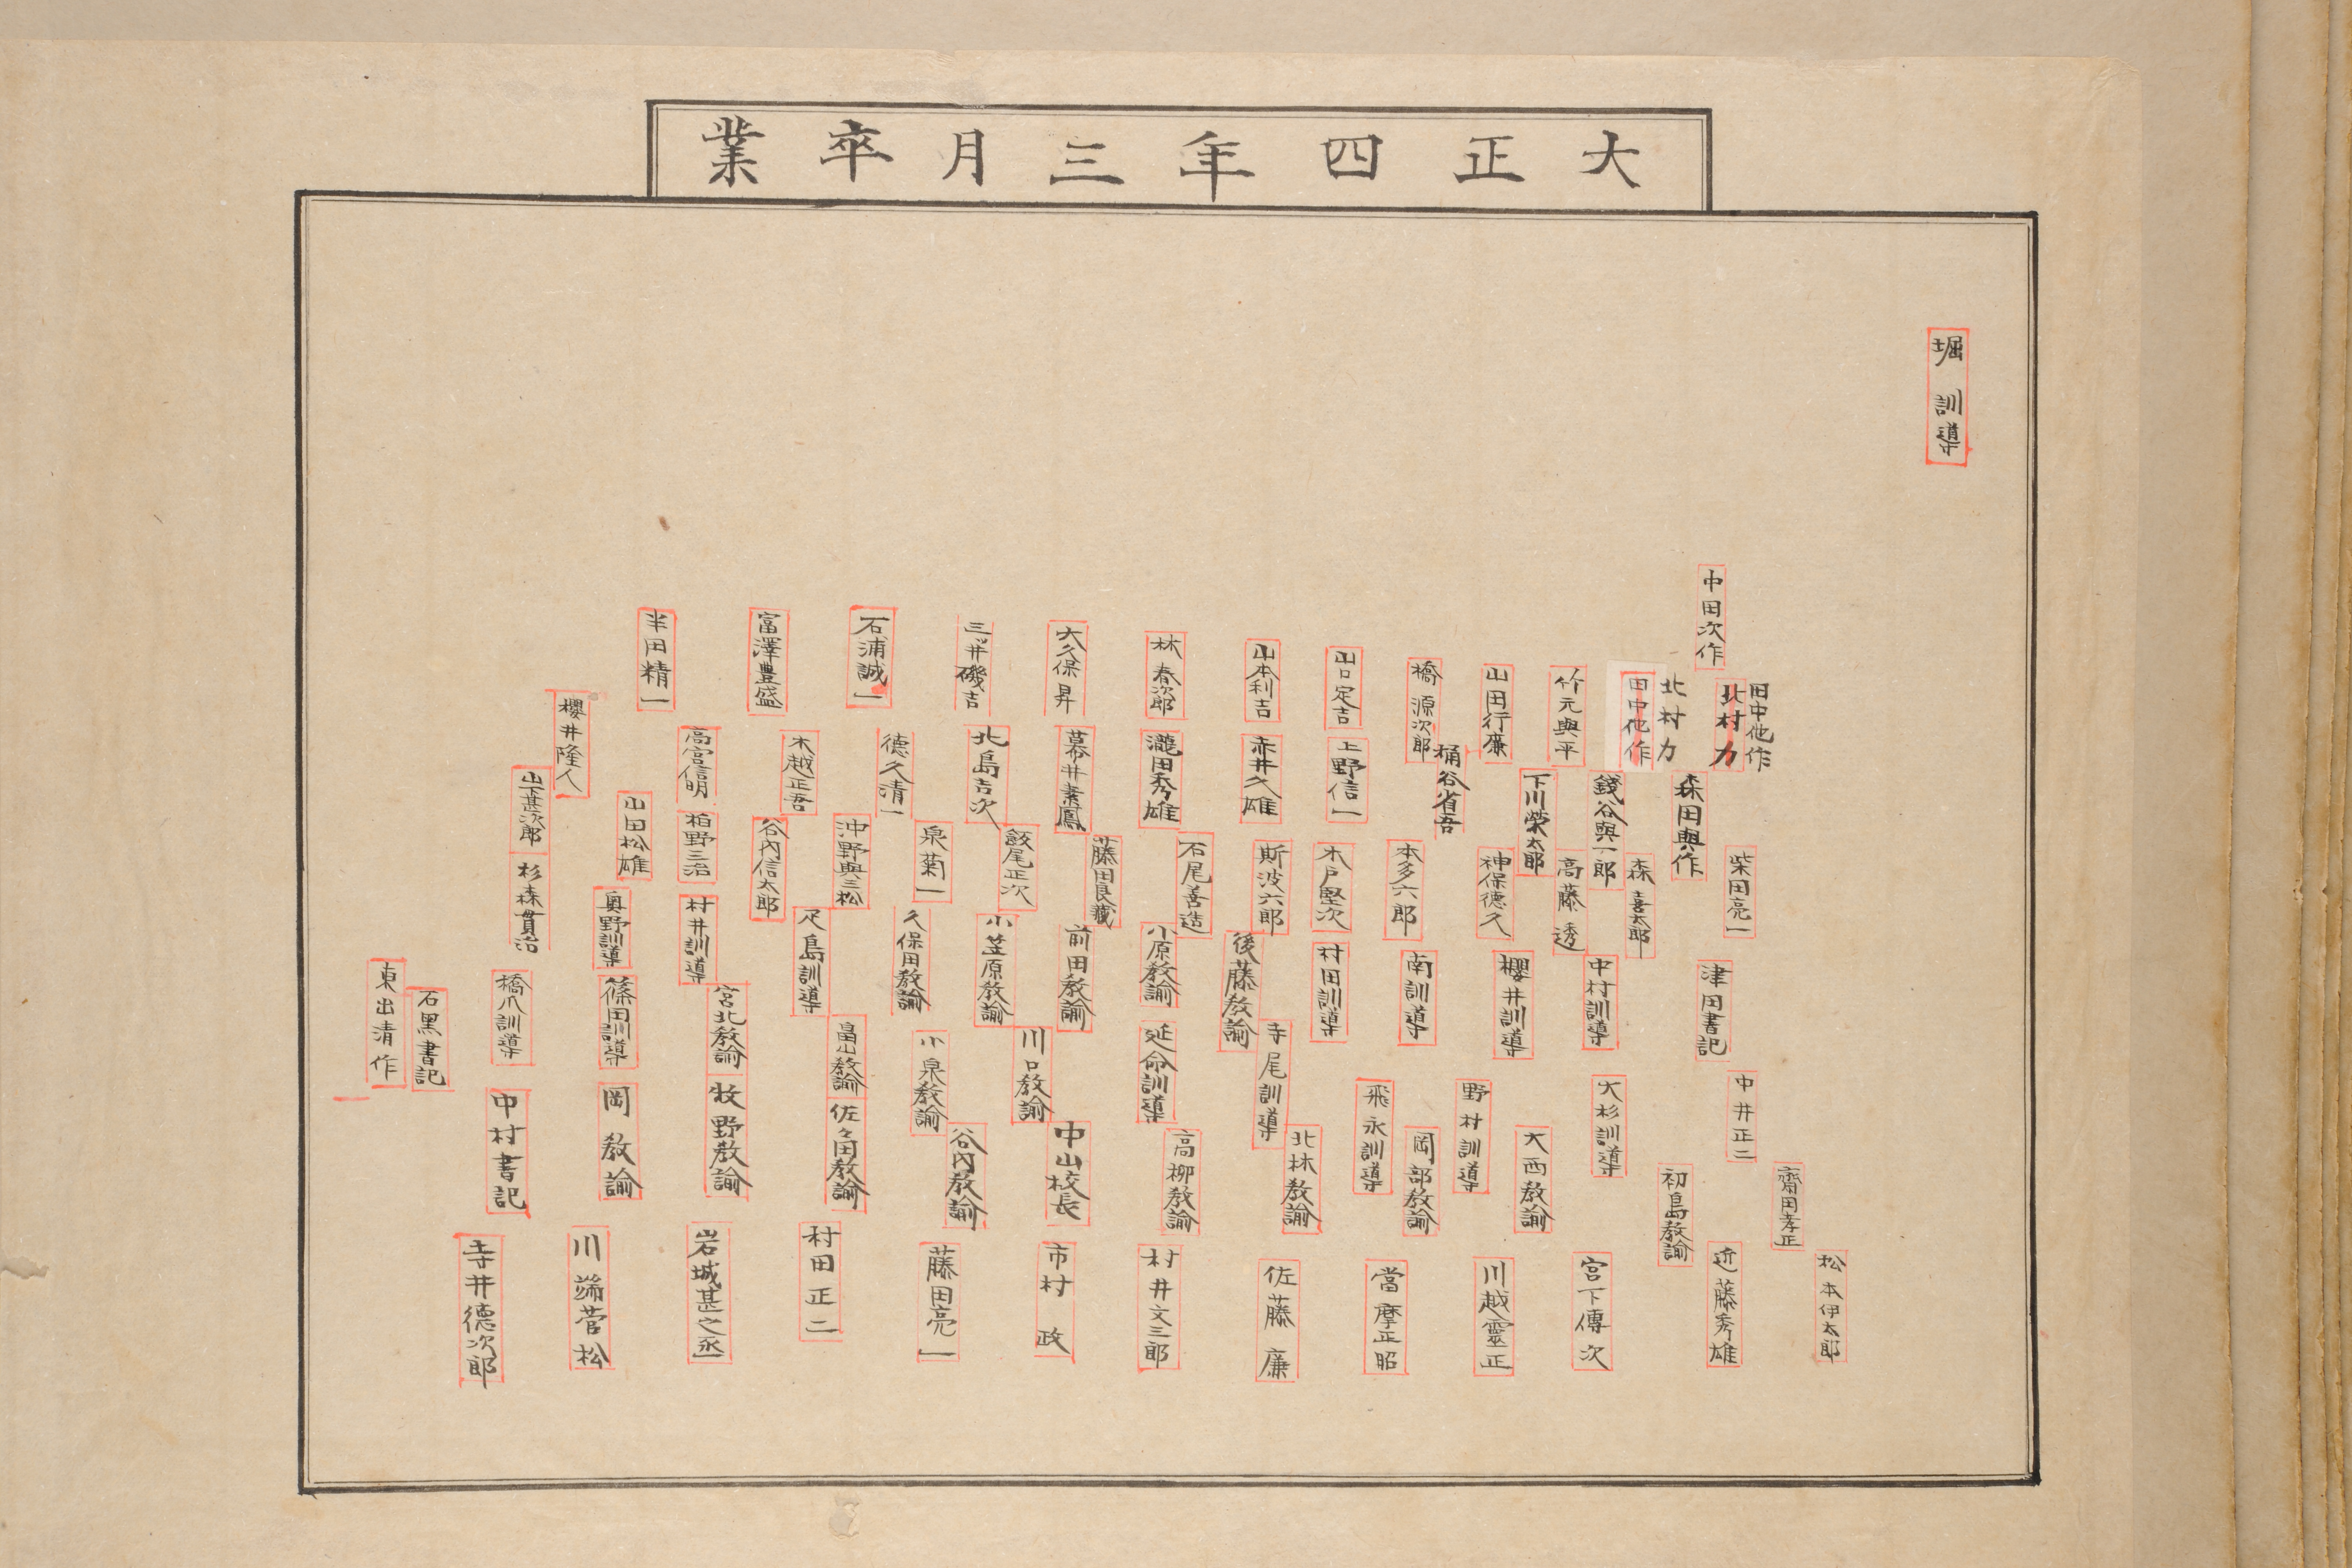 大正四年三月卒業
堀訓導
中田次作
田中他作
北村力
北村力
田中他作
竹元與平
山田行廉
橋源次郎
山口定吉
山本利吉
林春次郎
大久保昇
三井磯吉
石浦誠一
富澤豊盛
半田精一
櫻井隆人
森田與作
錢谷與一郎
下川榮太郎
桶谷省吾
上野信一
赤井久雄
瀧田秀雄
幕井素鳳
北島吉次
德久清一
木越正吾
高宮信明
山下甚次郎
柴田亮一
森喜太郎
高藤透
神保德久
本多六郎
木戸堅次
斯波六郎
石尾善造
藤田良藏
飯尾正次
泉菊一
沖野與三松
谷内信太郎
柏野三治
山田松雄
杉森貫治
津田書記
中村訓導
櫻井訓導
南訓導
村田訓導
後藤教諭
小原教諭
前田教諭
小笠原教諭
久保田教諭
疋島訓導
村井訓導
奥野訓導
中井正二
大杉訓導
野村訓導
飛永訓導
寺尾訓導
延命訓導
川口教諭
小泉教諭
畠山教諭
宮北教諭
篠田訓導
橋爪訓導
石黒書記
東出清作
齋田孝正
初島教諭
大西教諭
岡部教諭
北林教諭
高柳教諭
中山校長
谷内教諭
佐々田教諭
牧野教諭
岡教諭
中村書記
松本伊太郎
近藤秀雄
宮下傳次
川越靈正
當摩正昭
佐藤廉
村井文三郎
市村政
藤田亮一
村田正二
岩城甚之丞
川端菅松
寺井德次郎